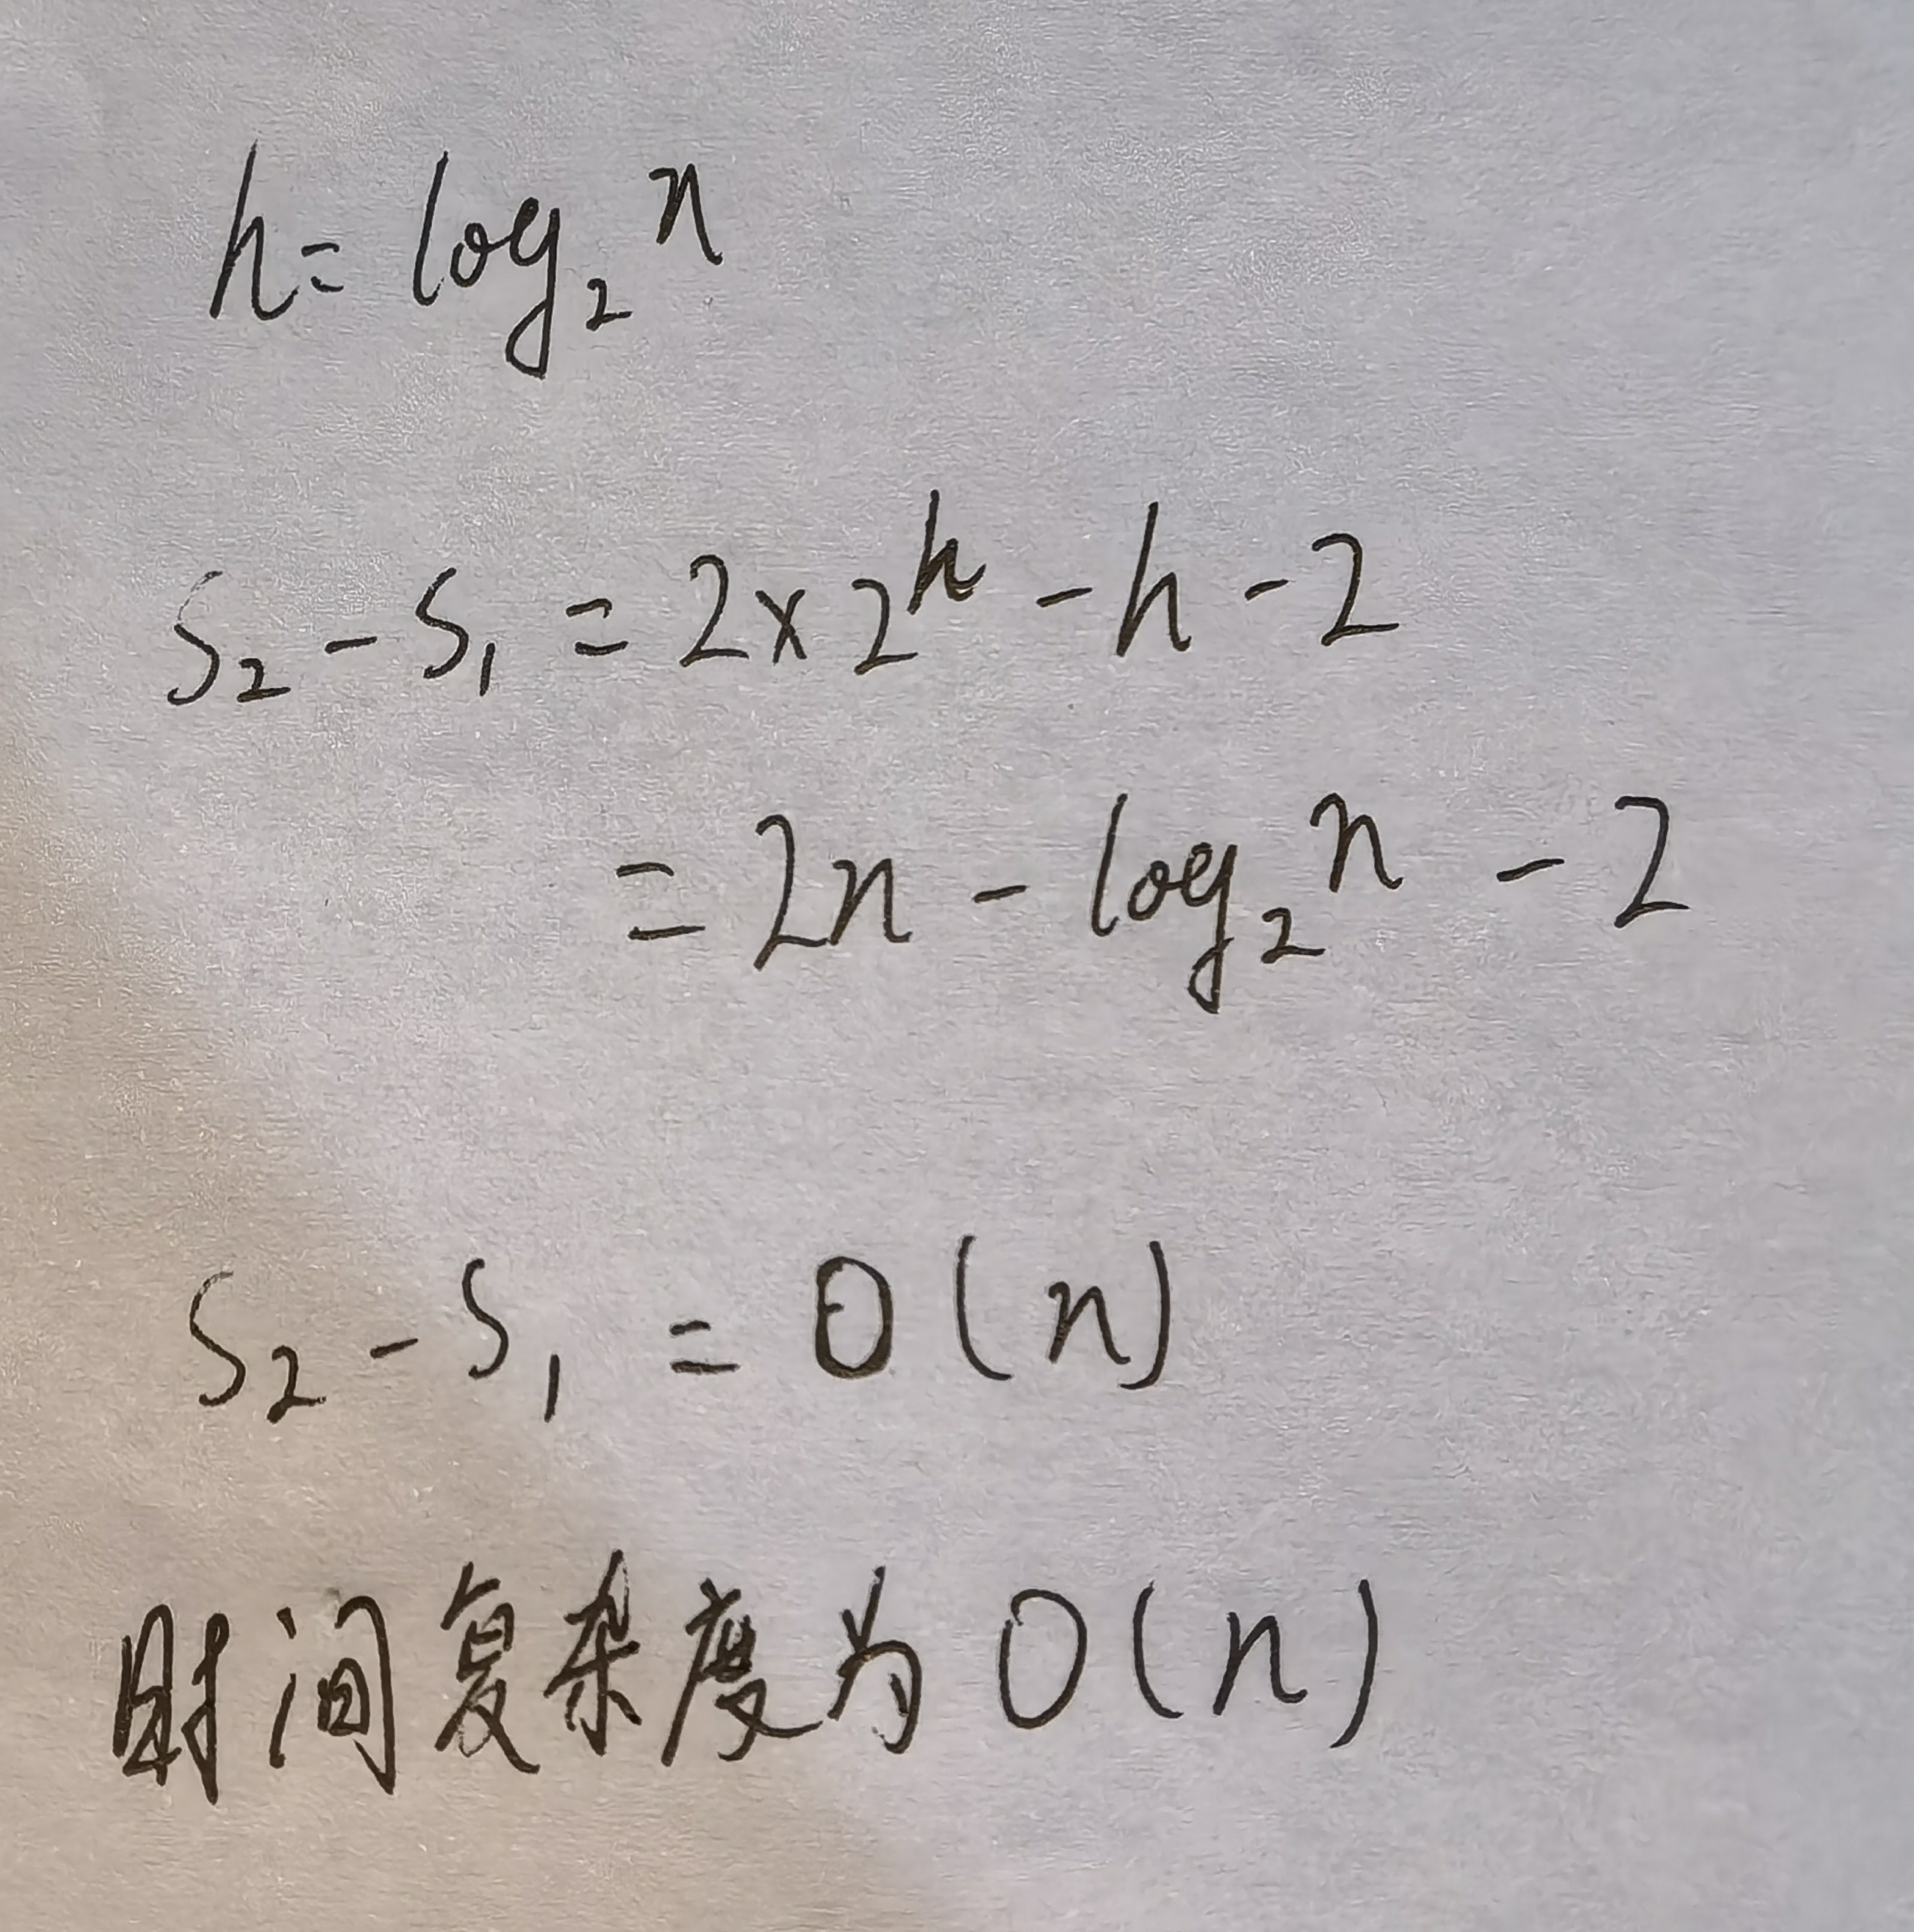 h = log₂n
S₂ - S₁ = 2×2ʰ - h - 2
= 2n - log₂n - 2
S₂ - S₁ = O(n)
时间复杂度为O(n)